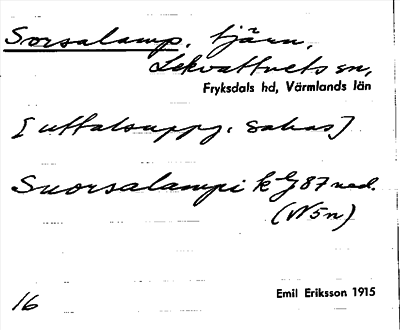 Sorsalamp, tjärn,
Lekvattnets sn,
Fryksdals hd, Värmlands län
[uttalsuppg. saknas]
Suorsalampi k G 87 ned.
(V 5 n)
16
Emil Eriksson 1915